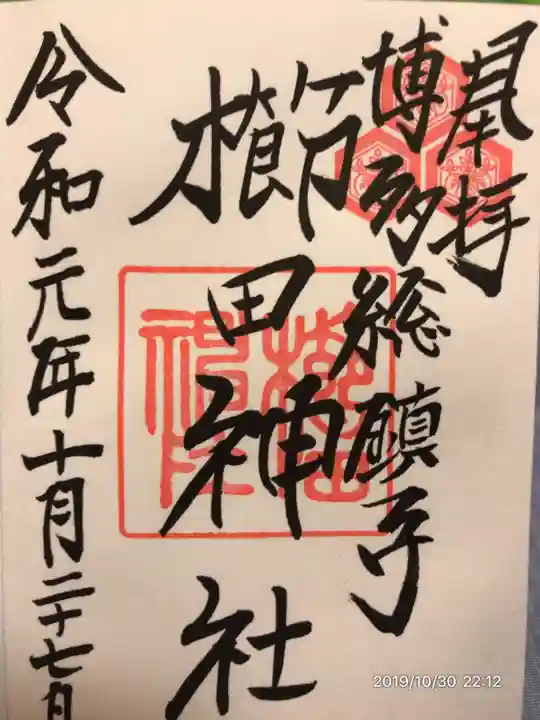 奉拝
博多総鎮守
櫛田神社
令和元年十月二十七日
2019/10/30 22:12